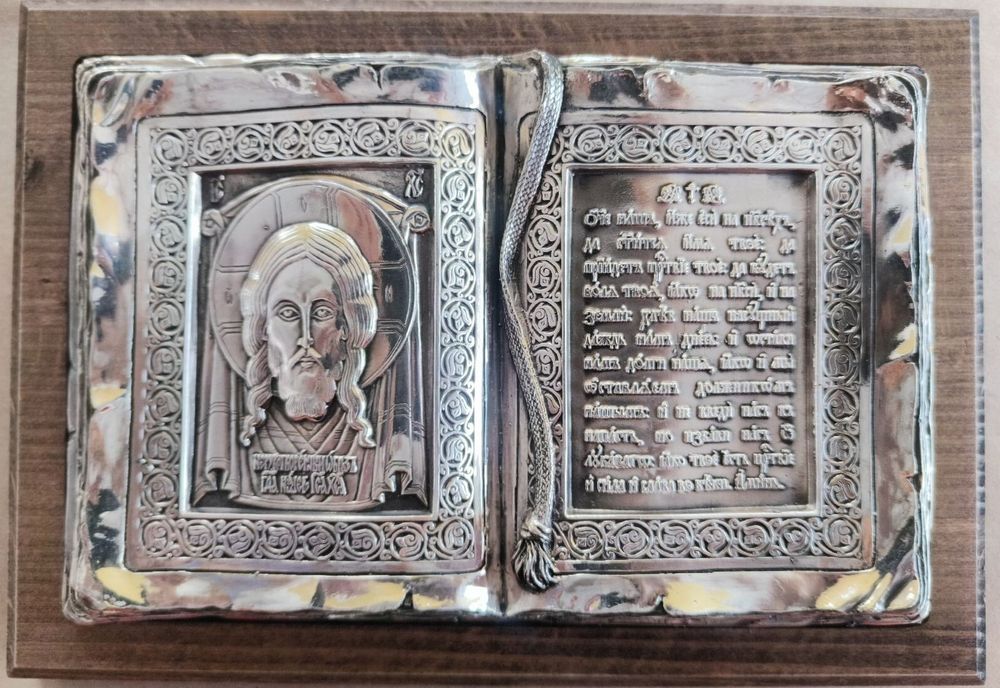 М † А
Ѻ҆́че на́шъ, и҆́же є҆сѝ на нб҃сѣ́хъ,
да ст҃и́тсѧ и҆́мѧ твоѐ: да
прїи́детъ црⷭ҇твїе твоѐ: да бꙋ́детъ
во́лѧ твоѧ̀, ꙗ҆́кѡ на нб҃сѝ, и҆ на
землѝ: хлѣ́бъ на́шъ насꙋ́щный
да́ждь на́мъ дне́сь: и҆ ѡ҆ста́ви
на́мъ до́лги на́шѧ, ꙗ҆́кѡ и҆ мы̀
ѡ҆ставлѧ́емъ должникѡ́мъ
на́шымъ: и҆ не введѝ на́съ въ
напа́сть, но и҆зба́ви на́съ ѿ
лꙋка́вагѡ: ꙗ҆́кѡ твоѐ є҆́сть црⷭ҇твїе
и҆ си́ла и҆ сла́ва во вѣ́ки. А҆ми́нь.